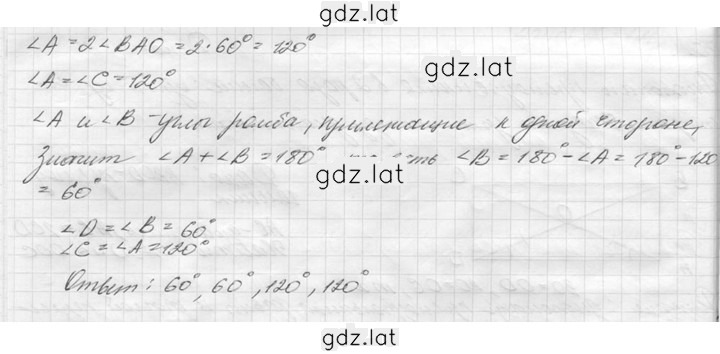 gdz.lat
∠A = 2∠BAO = 2·60° = 120°
gdz.lat
∠A = ∠C = 120°
∠A и ∠B - углы ромба, прилежащие к одной стороне,
Значит ∠A + ∠B = 180° ∠B = 180° - ∠A = 180° - 120
gdz.lat
= 60°
∠D = ∠B = 60°
∠C = ∠A = 120°
Ответ: 60°, 60°, 120°, 120°
gdz.lat